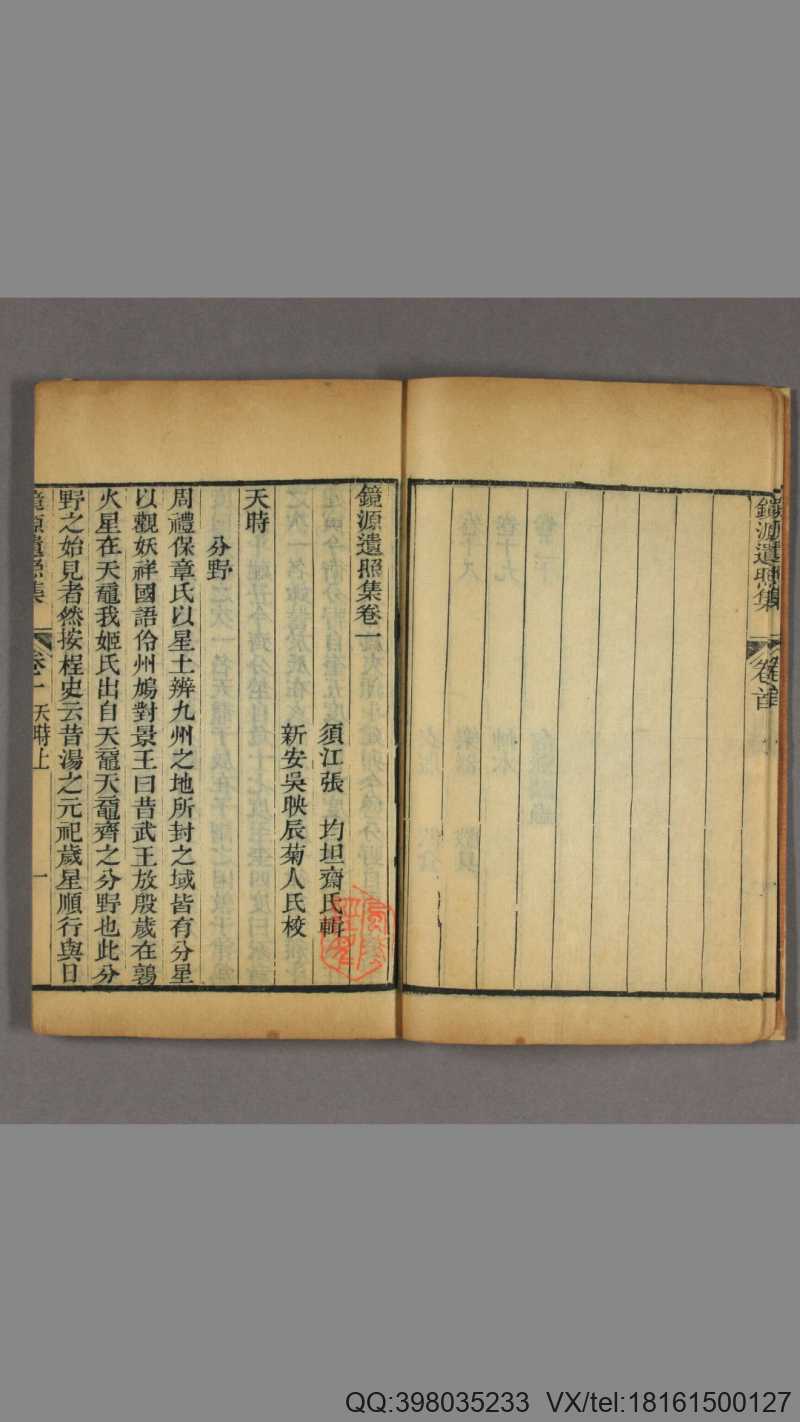 鏡源遺照集
卷首
鏡源遺照集卷一
須江張 均坦齋氏輯
新安吳映辰菊人氏校
天時
分野
周禮保章氏以星土辨九州之地所封之域皆有分星
以觀妖祥國語伶州鳩對景王曰昔武王放殷歲在鶉
火星在天黿我姬氏出自天黿天黿齊之分野也此分
野之始見者然按桯史云昔湯之元祀歲星順行與日
鏡源遺照集
卷一 天時上
一
QQ:398035233 VX/tel:18161500127